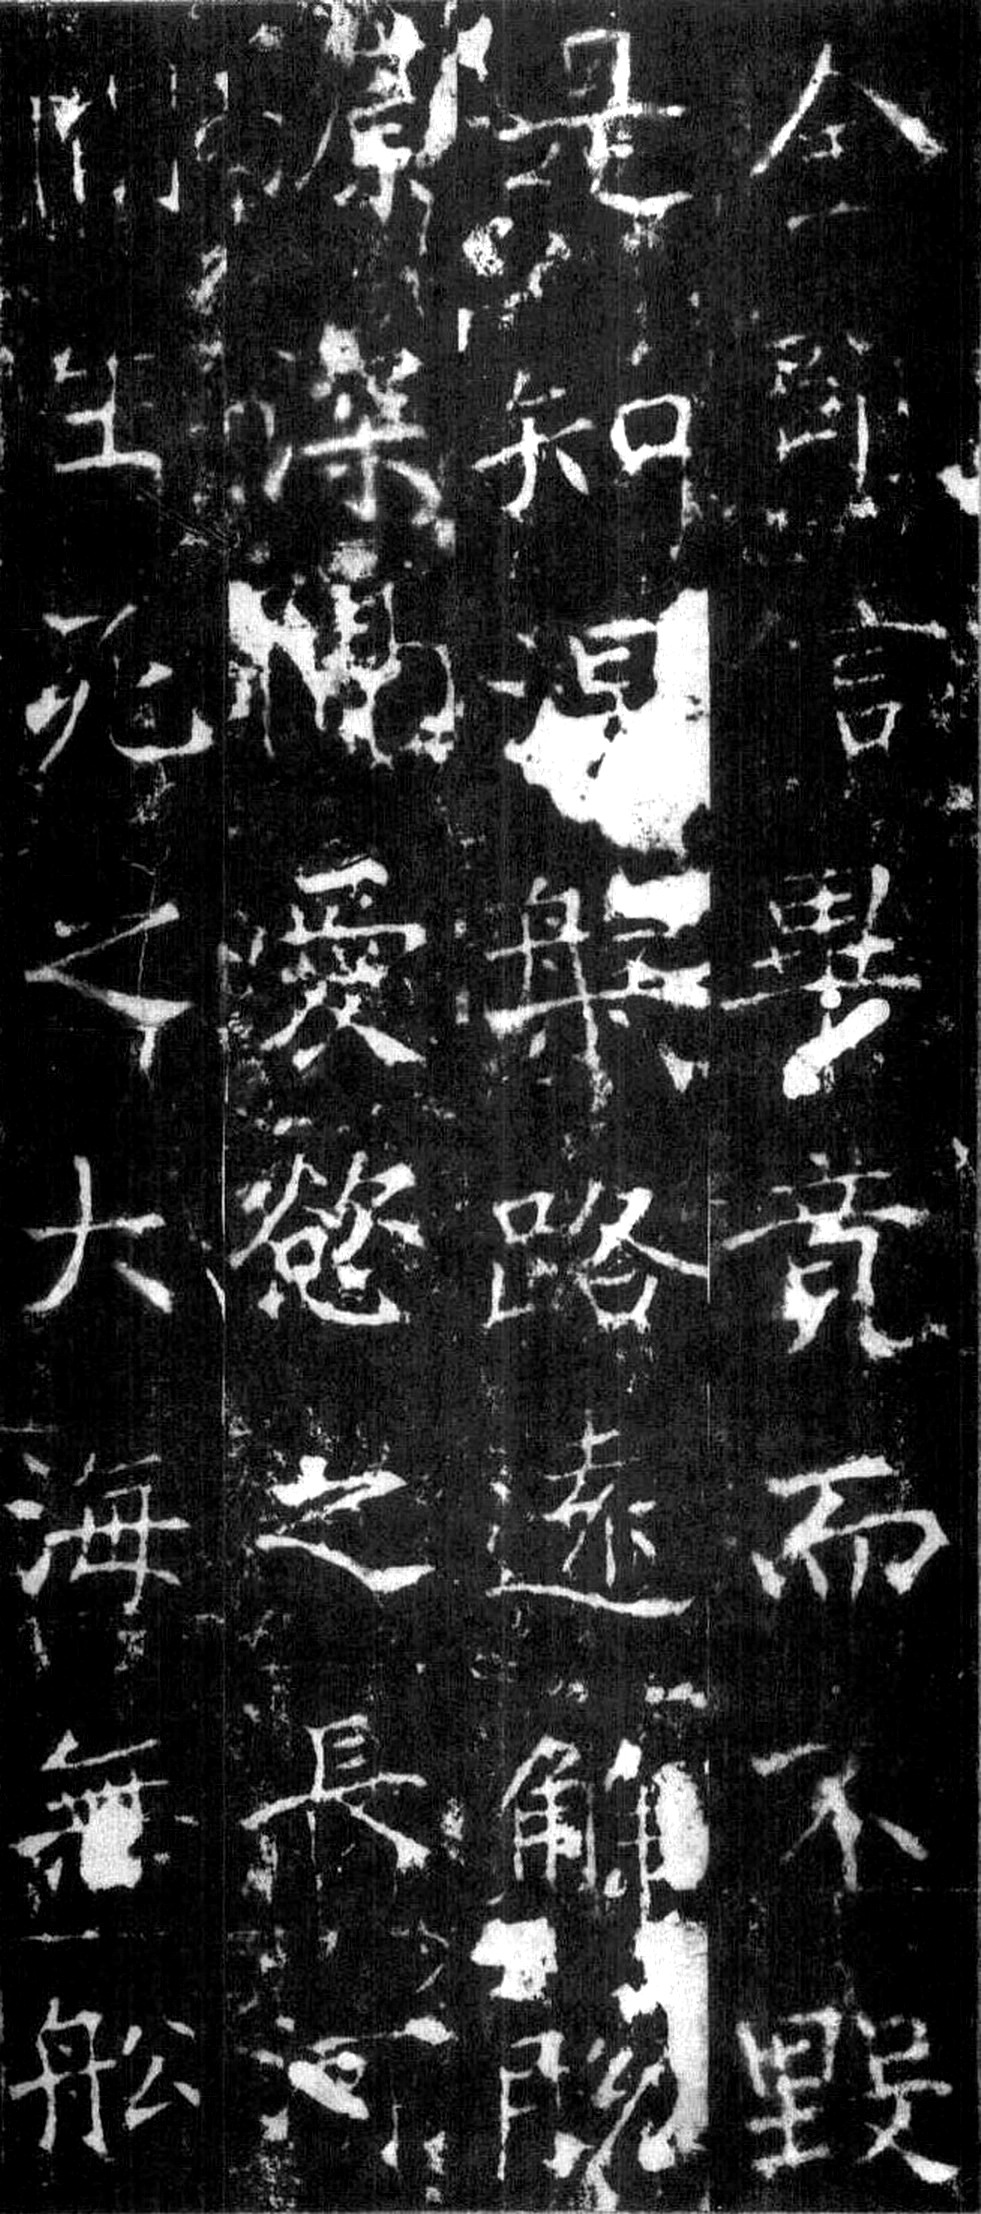 全即言畢竟而不毀
是知涅槃路遠解脫
源深隔愛慾之長河
間生死之大海無船